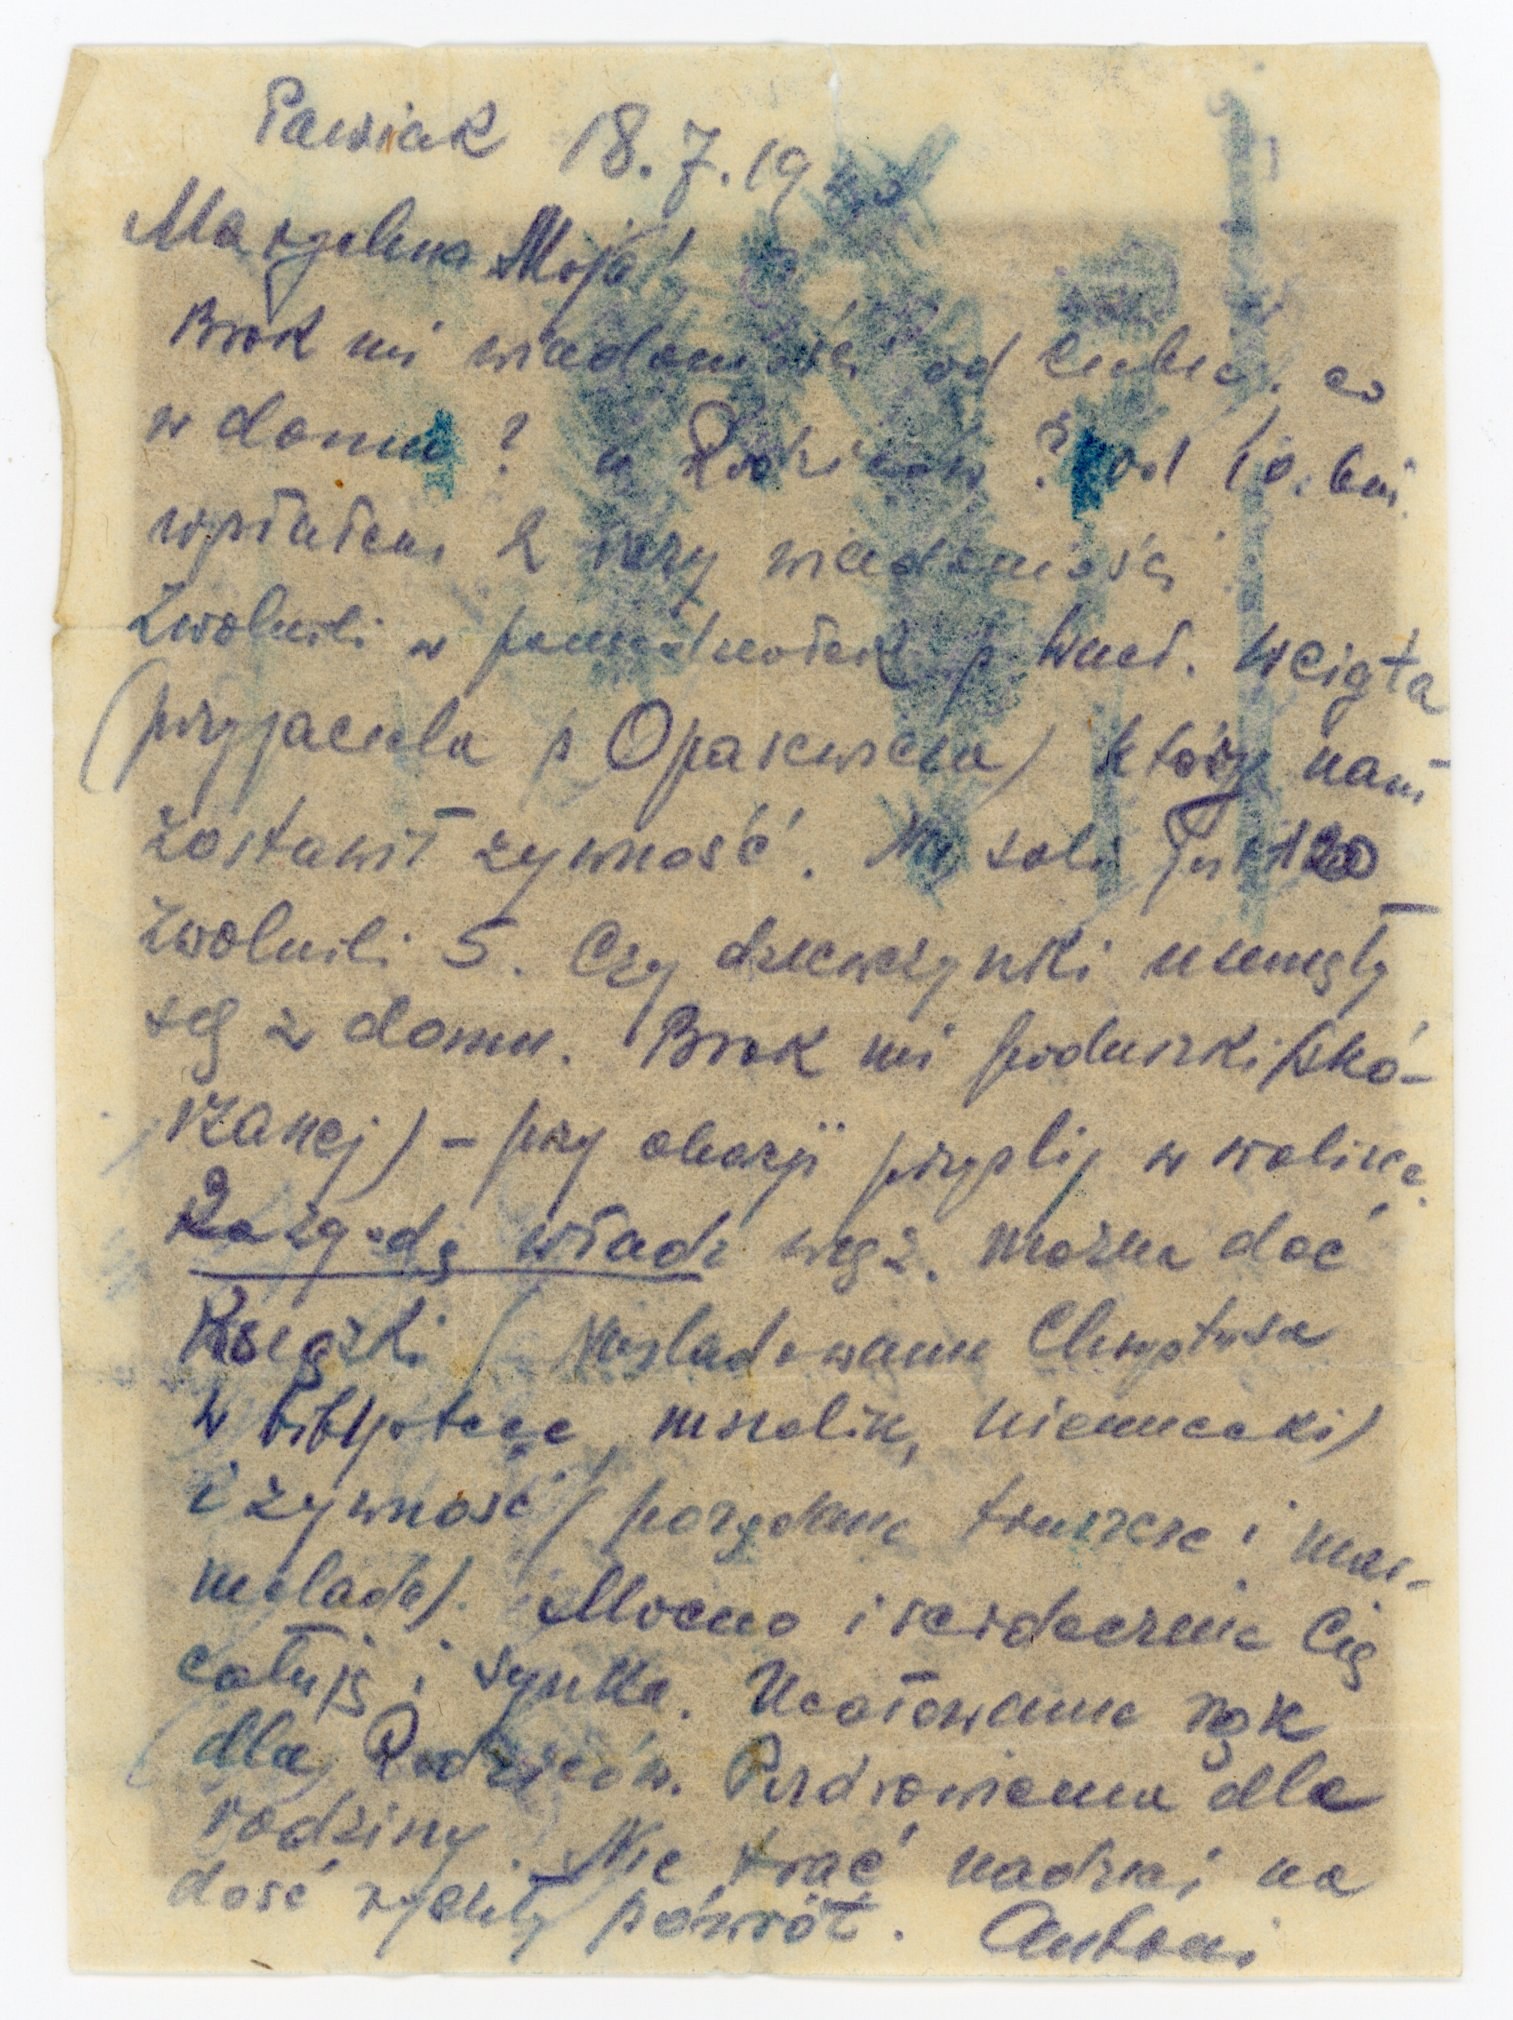 Pawiak 18.7.1940
Marzeleno Moja!
Brak mi wiadomości od Ciebie. co
w domu? u Rodziców? od 10. bm.
wysłałem 2 razy wiadomość
Zwolnili w poniedziałek p. Wacł. Wcigła
(przyjaciela p Opaszewicza) który nam
zostawił żywność. Na sali jest 120
zwolnili 5. Czy dziewczynki usunęły
się z domu. Brak mi poduszki (skó-
rzanej) – przy okazji przyslij w walizce.
Za zgodą władz więz. można dać
Książki (Naśladowanie Chrystusa
w bibljotece, mszalik, niemiecki)
i żywność (pożądane tłuszcze i mar-
melada). Mocno i serdecznie Cię
całuję i synka. Ucałowanie rąk
dla Rodziców. Pozdrowienia dla
rodziny. Nie trać nadziei na
dość rychły powrót. Antoni